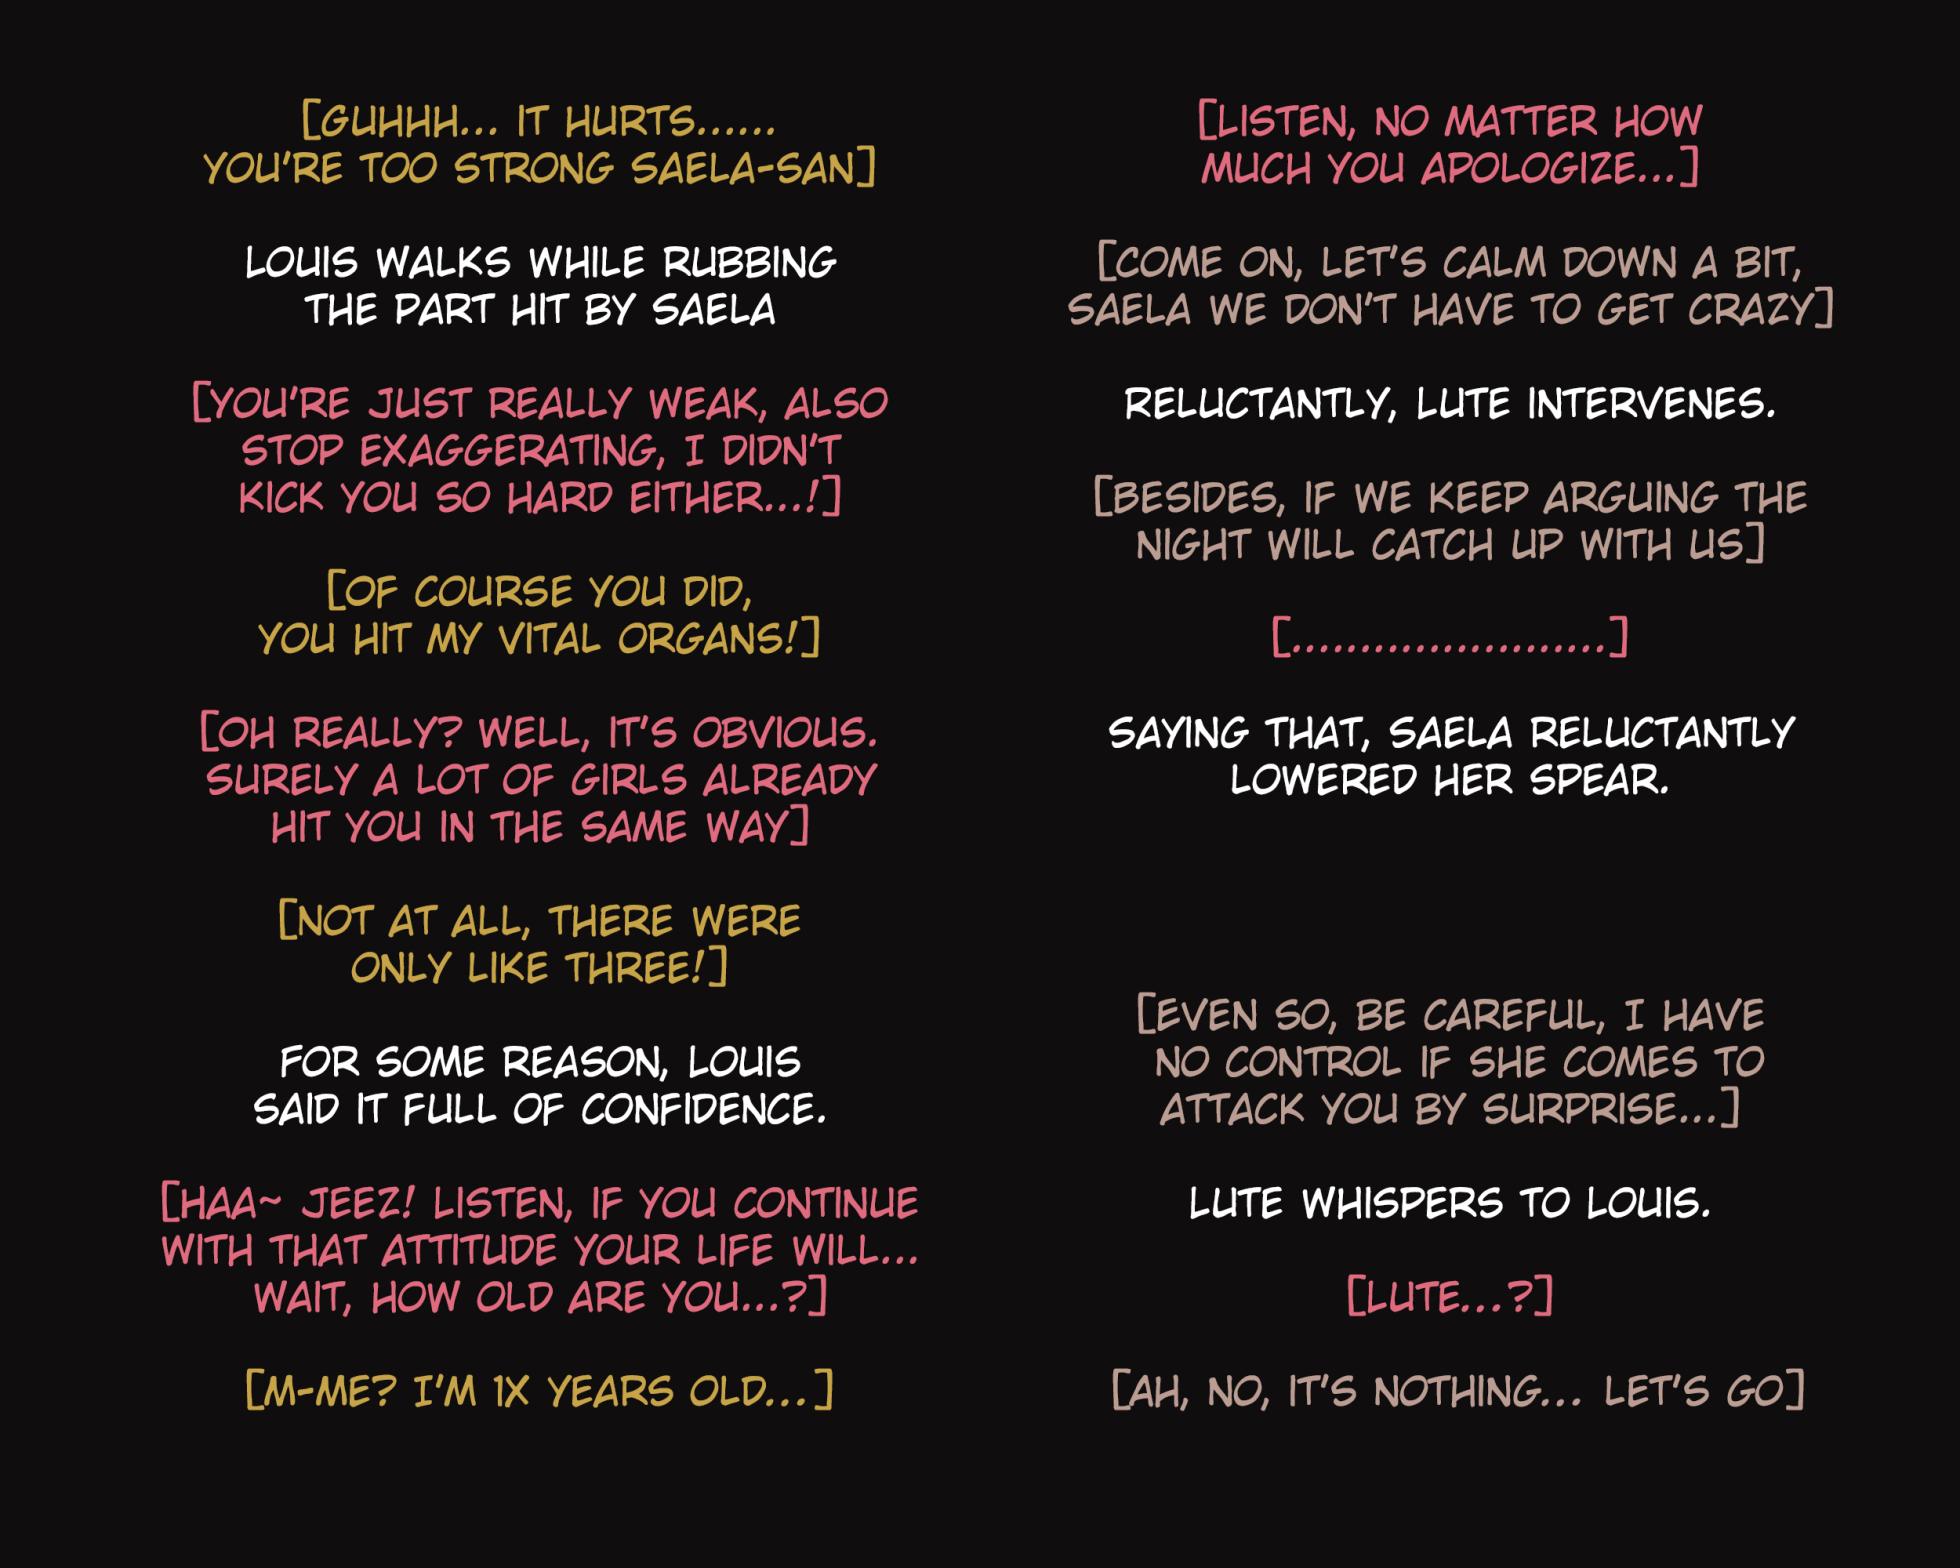 [LISTEN, NO MATTER HOW
MUCH YOU APOLOGIZE...]
[COME ON, LET'S CALM DOWN A BIT,
SAELA WE DON'T HAVE TO GET CRAZY]
RELUCTANTLY, LUTE INTERVENES.
[BESIDES, IF WE KEEP ARGUING THE
NIGHT WILL CATCH UP WITH US]
[.......................]
SAYING THAT, SAELA RELUCTANTLY
LOWERED HER SPEAR.
[EVEN SO, BE CAREFUL, I HAVE
NO CONTROL IF SHE COMES TO
ATTACK YOU BY SURPRISE...]
LUTE WHISPERS TO LOUIS.
[LUTE...?]
[AH, NO, IT'S NOTHING... LET'S GO]
[GUHHH... IT HURTS......
YOU'RE TOO STRONG SAELA-SAN]
LOUIS WALKS WHILE RUBBING
THE PART HIT BY SAELA
[YOU'RE JUST REALLY WEAK, ALSO
STOP EXAGGERATING, I DIDN'T
KICK YOU SO HARD EITHER...!]
[OF COURSE YOU DID,
YOU HIT MY VITAL ORGANS!]
[OH REALLY? WELL, IT'S OBVIOUS.
SURELY A LOT OF GIRLS ALREADY
HIT YOU IN THE SAME WAY]
[NOT AT ALL, THERE WERE
ONLY LIKE THREE!]
FOR SOME REASON, LOUIS
SAID IT FULL OF CONFIDENCE.
[HAA~ JEEZ! LISTEN, IF YOU CONTINUE
WITH THAT ATTITUDE YOUR LIFE WILL...
WAIT, HOW OLD ARE YOU...?]
[M-ME? I'M 1X YEARS OLD...]